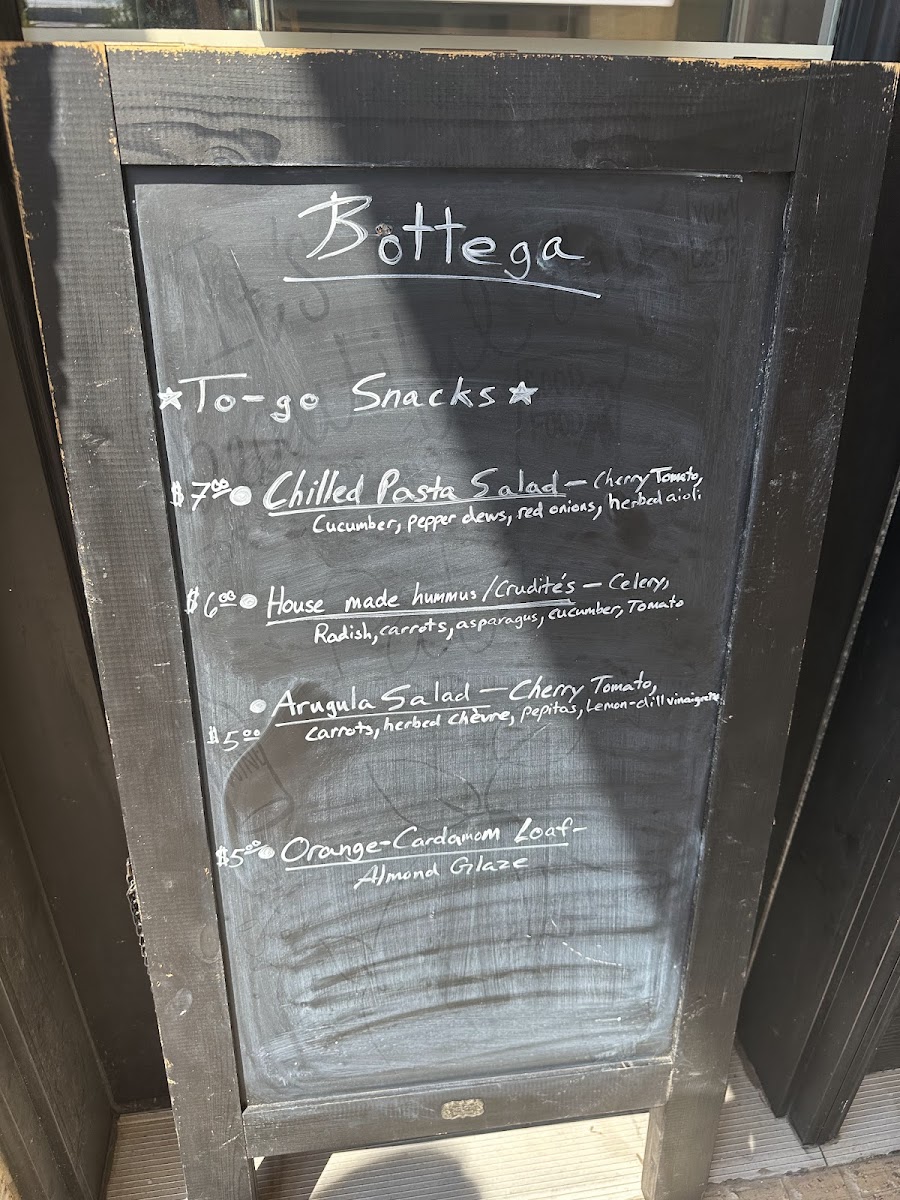 Bottega
☆To-go Snacks☆
$7.00 • Chilled Pasta Salad — Cherry Tomato,
Cucumber, pepper dews, red onions, herbed aioli
$6.00 • House made hummus/Crudités — Celery,
Radish, carrots, asparagus, cucumber, Tomato
• Arugula Salad — Cherry Tomato,
$5.00 carrots, herbed chèvre, pepitas, Lemon-dill vinaigrette
$5.00 • Orange-Cardamom Loaf-
Almond Glaze